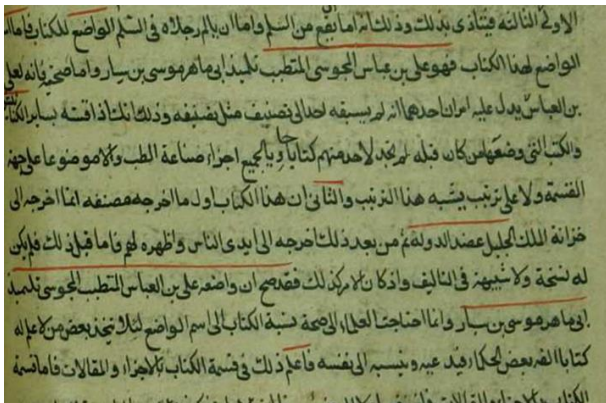 الاولى الثالثه فيتأدى بذلك وذلك انه اما يقع من السلم واما ان يالم رجلاه فى السلم الواضع للكتاب فاما
الواضع لهذا الكتاب فهو على بن عباس المجوسى المتطبب تلميذ ابى ماهر موسى بن سيار واما صحته فانه لعلى
بن العباس يدل عليه امران احدهما انه لم يسبقه احد الى تصنيف مثل تصنيفه وذلك انك اذا قسته بساير الكتب
والكتب التى وضعها من كان قبله لم تجد لاحد منهم كتابا جاويا لجميع اجزاء صناعة الطب والامو ضوعا على جهة
القسمة ولا على ترتيب يشبه هذا الترتيب والثانى ان هذا الكتاب اول ما اخرجه مصنفه انما اخرجه الى
خزانة الملك الجليل عضد الدولة ثم من بعد ذلك اخرجه الى ايدى الناس واظهره لهم فاما قبل ذلك فلم يكن
له نسخة ولا شبيهة فى التاليف واذ كان الامر كذلك فقد صح ان واضعه على بن العباس المتطبب المجوسى تلميذ
ابى ماهر موسى بن سيار وانما احتاجت العلماء الى صحة نسبة الكتاب الى اسم الواضع لئلا يتخذ بعض من لا علم له
كتابا الفه بعض الحكماء فيدعيه وينسبه الى نفسه فاعلم ذلك فى قسمة الكتاب بالاجزاء والمقالات فاما قسمة